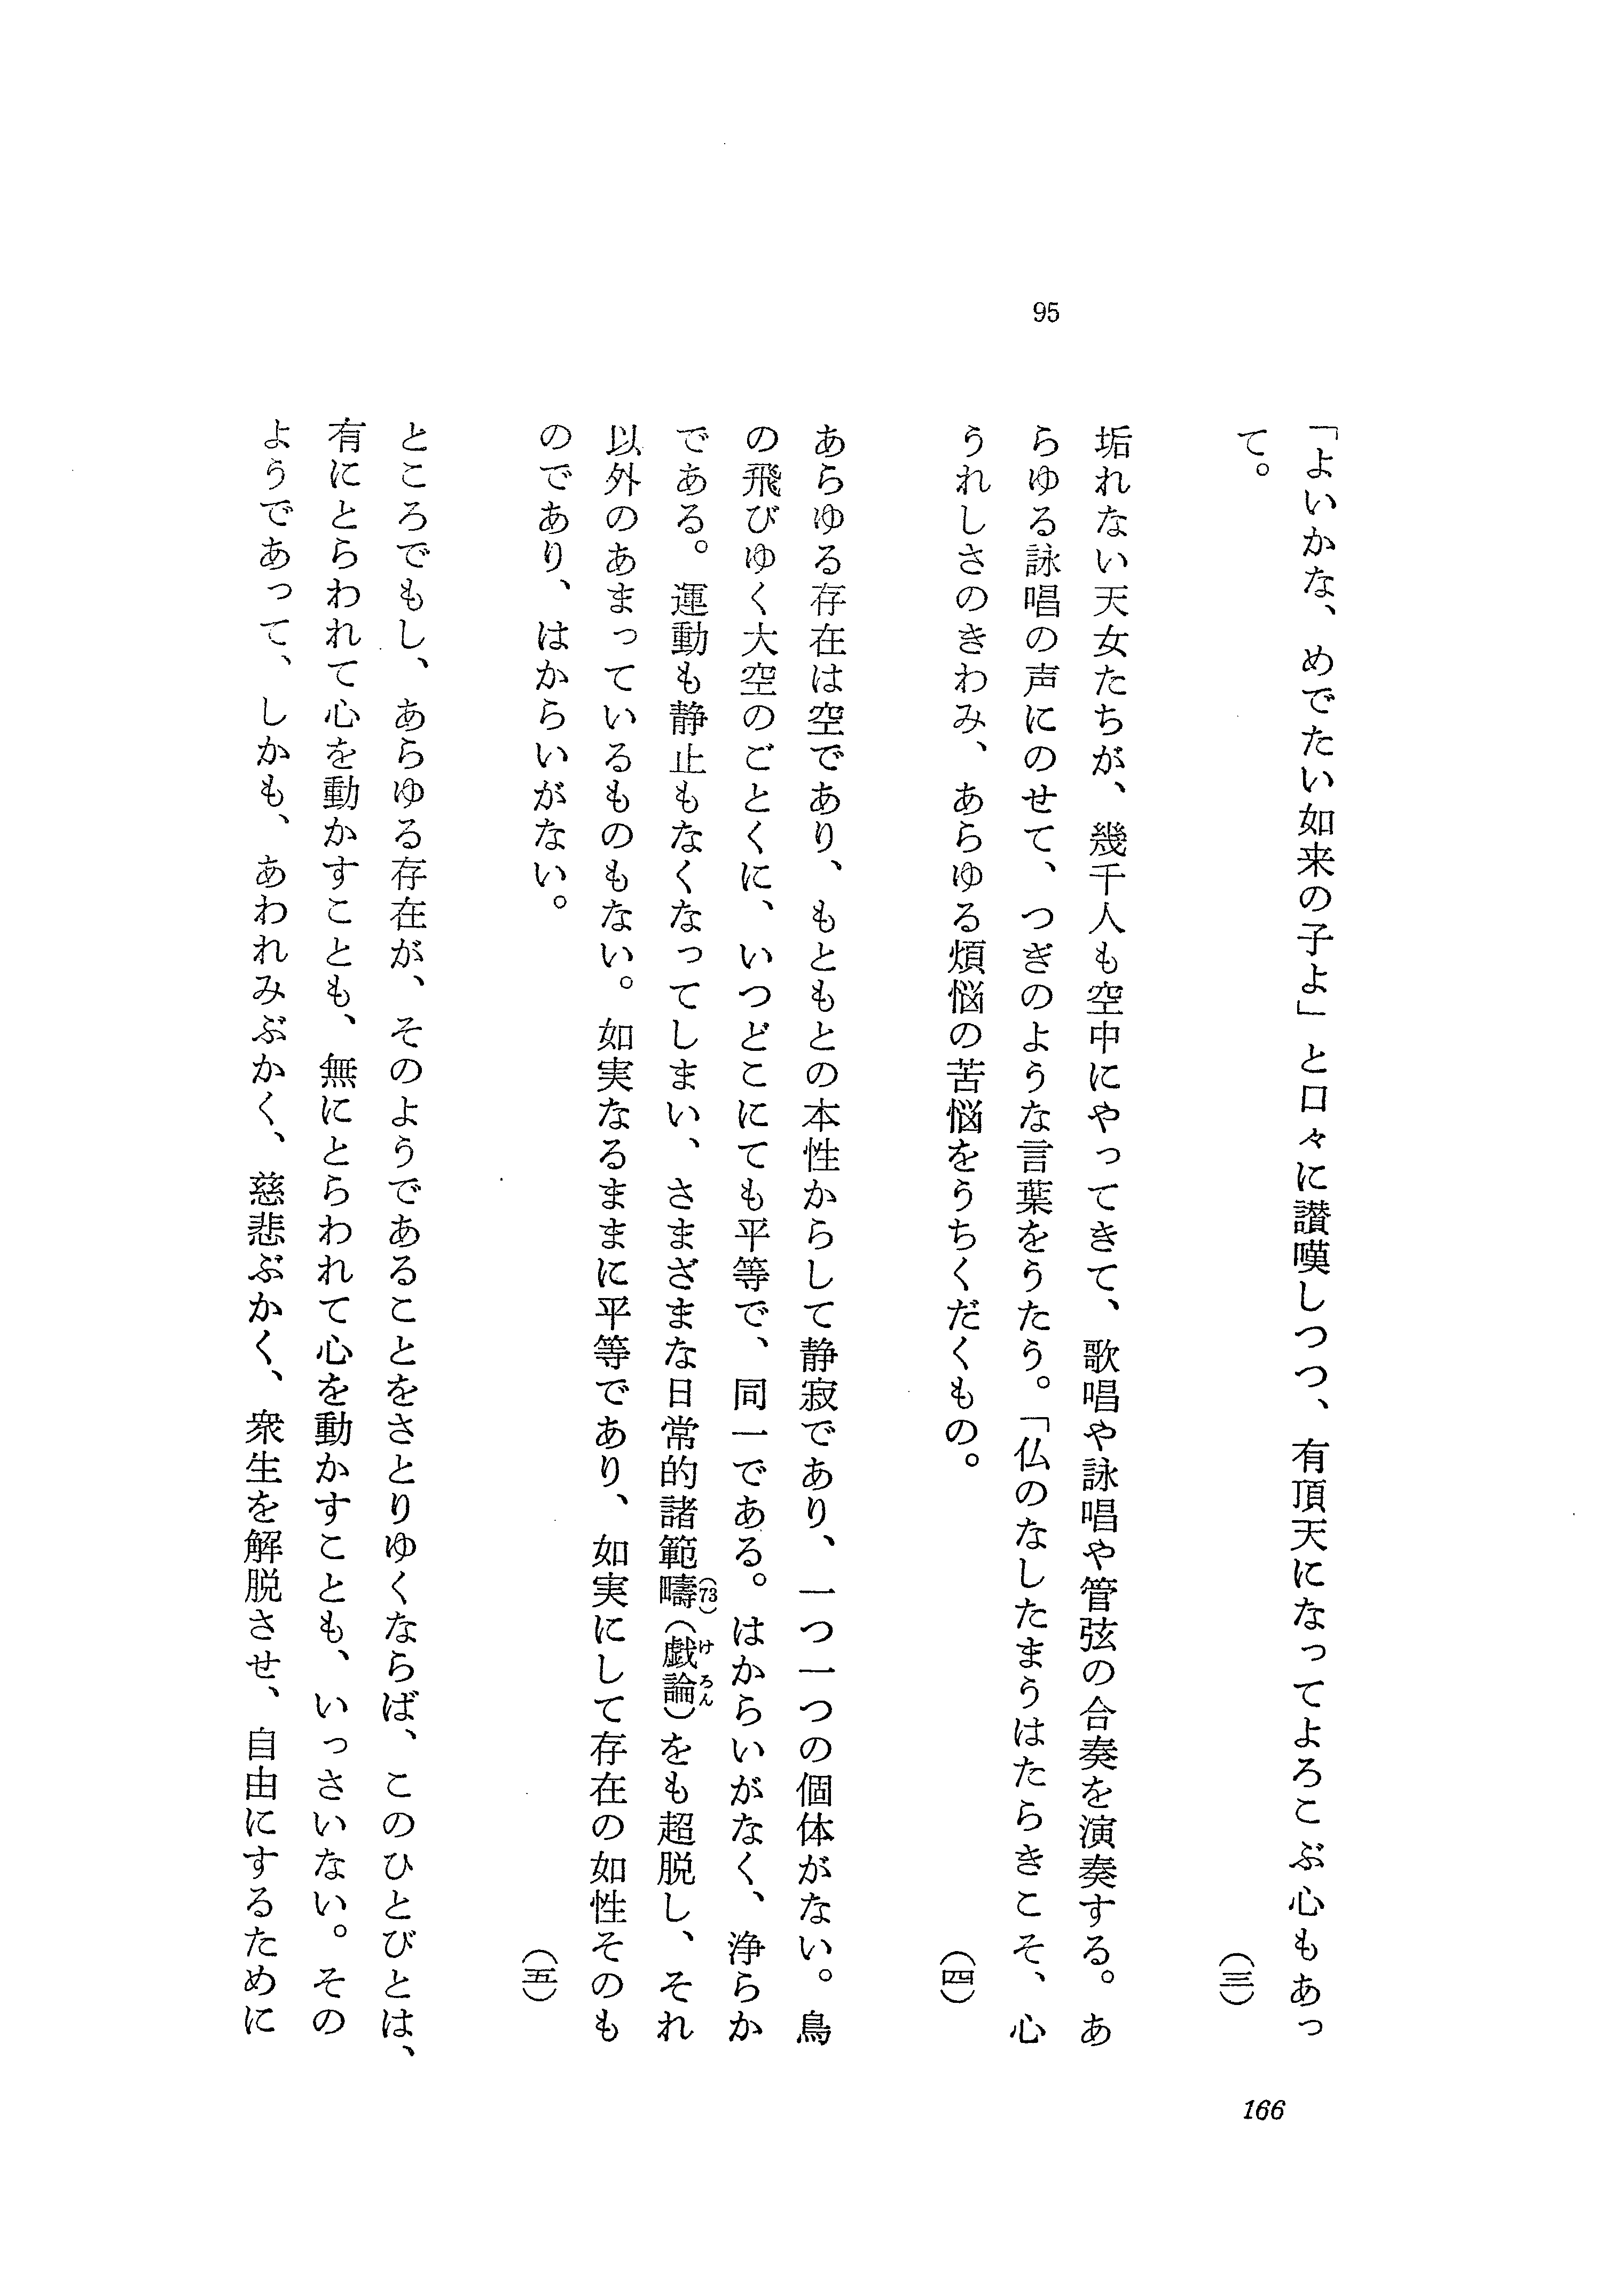 95
「よいかな、めでたい如来の子よ」と口々に讃嘆しつつ、有頂天になってよろこぶ心もあっ
て。
(三)
垢れない天女たちが、幾千人も空中にやってきて、歌唱や詠唱や管弦の合奏を演奏する。あ
らゆる詠唱の声にのせて、つぎのような言葉をうたう。「仏のなしたまうはたらきこそ、心
うれしさのきわみ、あらゆる煩悩の苦悩をうちくだくもの。
(四)
あらゆる存在は空であり、もともとの本性からして静寂であり、一つ一つの個体がない。鳥
の飛びゆく大空のごとくに、いつどこにても平等で、同一である。はからいがなく、浄らか
である。運動も静止もなくなってしまい、さまざまな日常的諸範疇(73)(戯論けろん)をも超脱し、それ
以外のあまっているものもない。如実なるままに平等であり、如実にして存在の如性そのも
のであり、はからいがない。
(五)
ところでもし、あらゆる存在が、そのようであることをさとりゆくならば、このひとびとは、
有にとらわれて心を動かすことも、無にとらわれて心を動かすことも、いっさいない。その
ようであって、しかも、あわれみぶかく、慈悲ぶかく、衆生を解脱させ、自由にするために
166